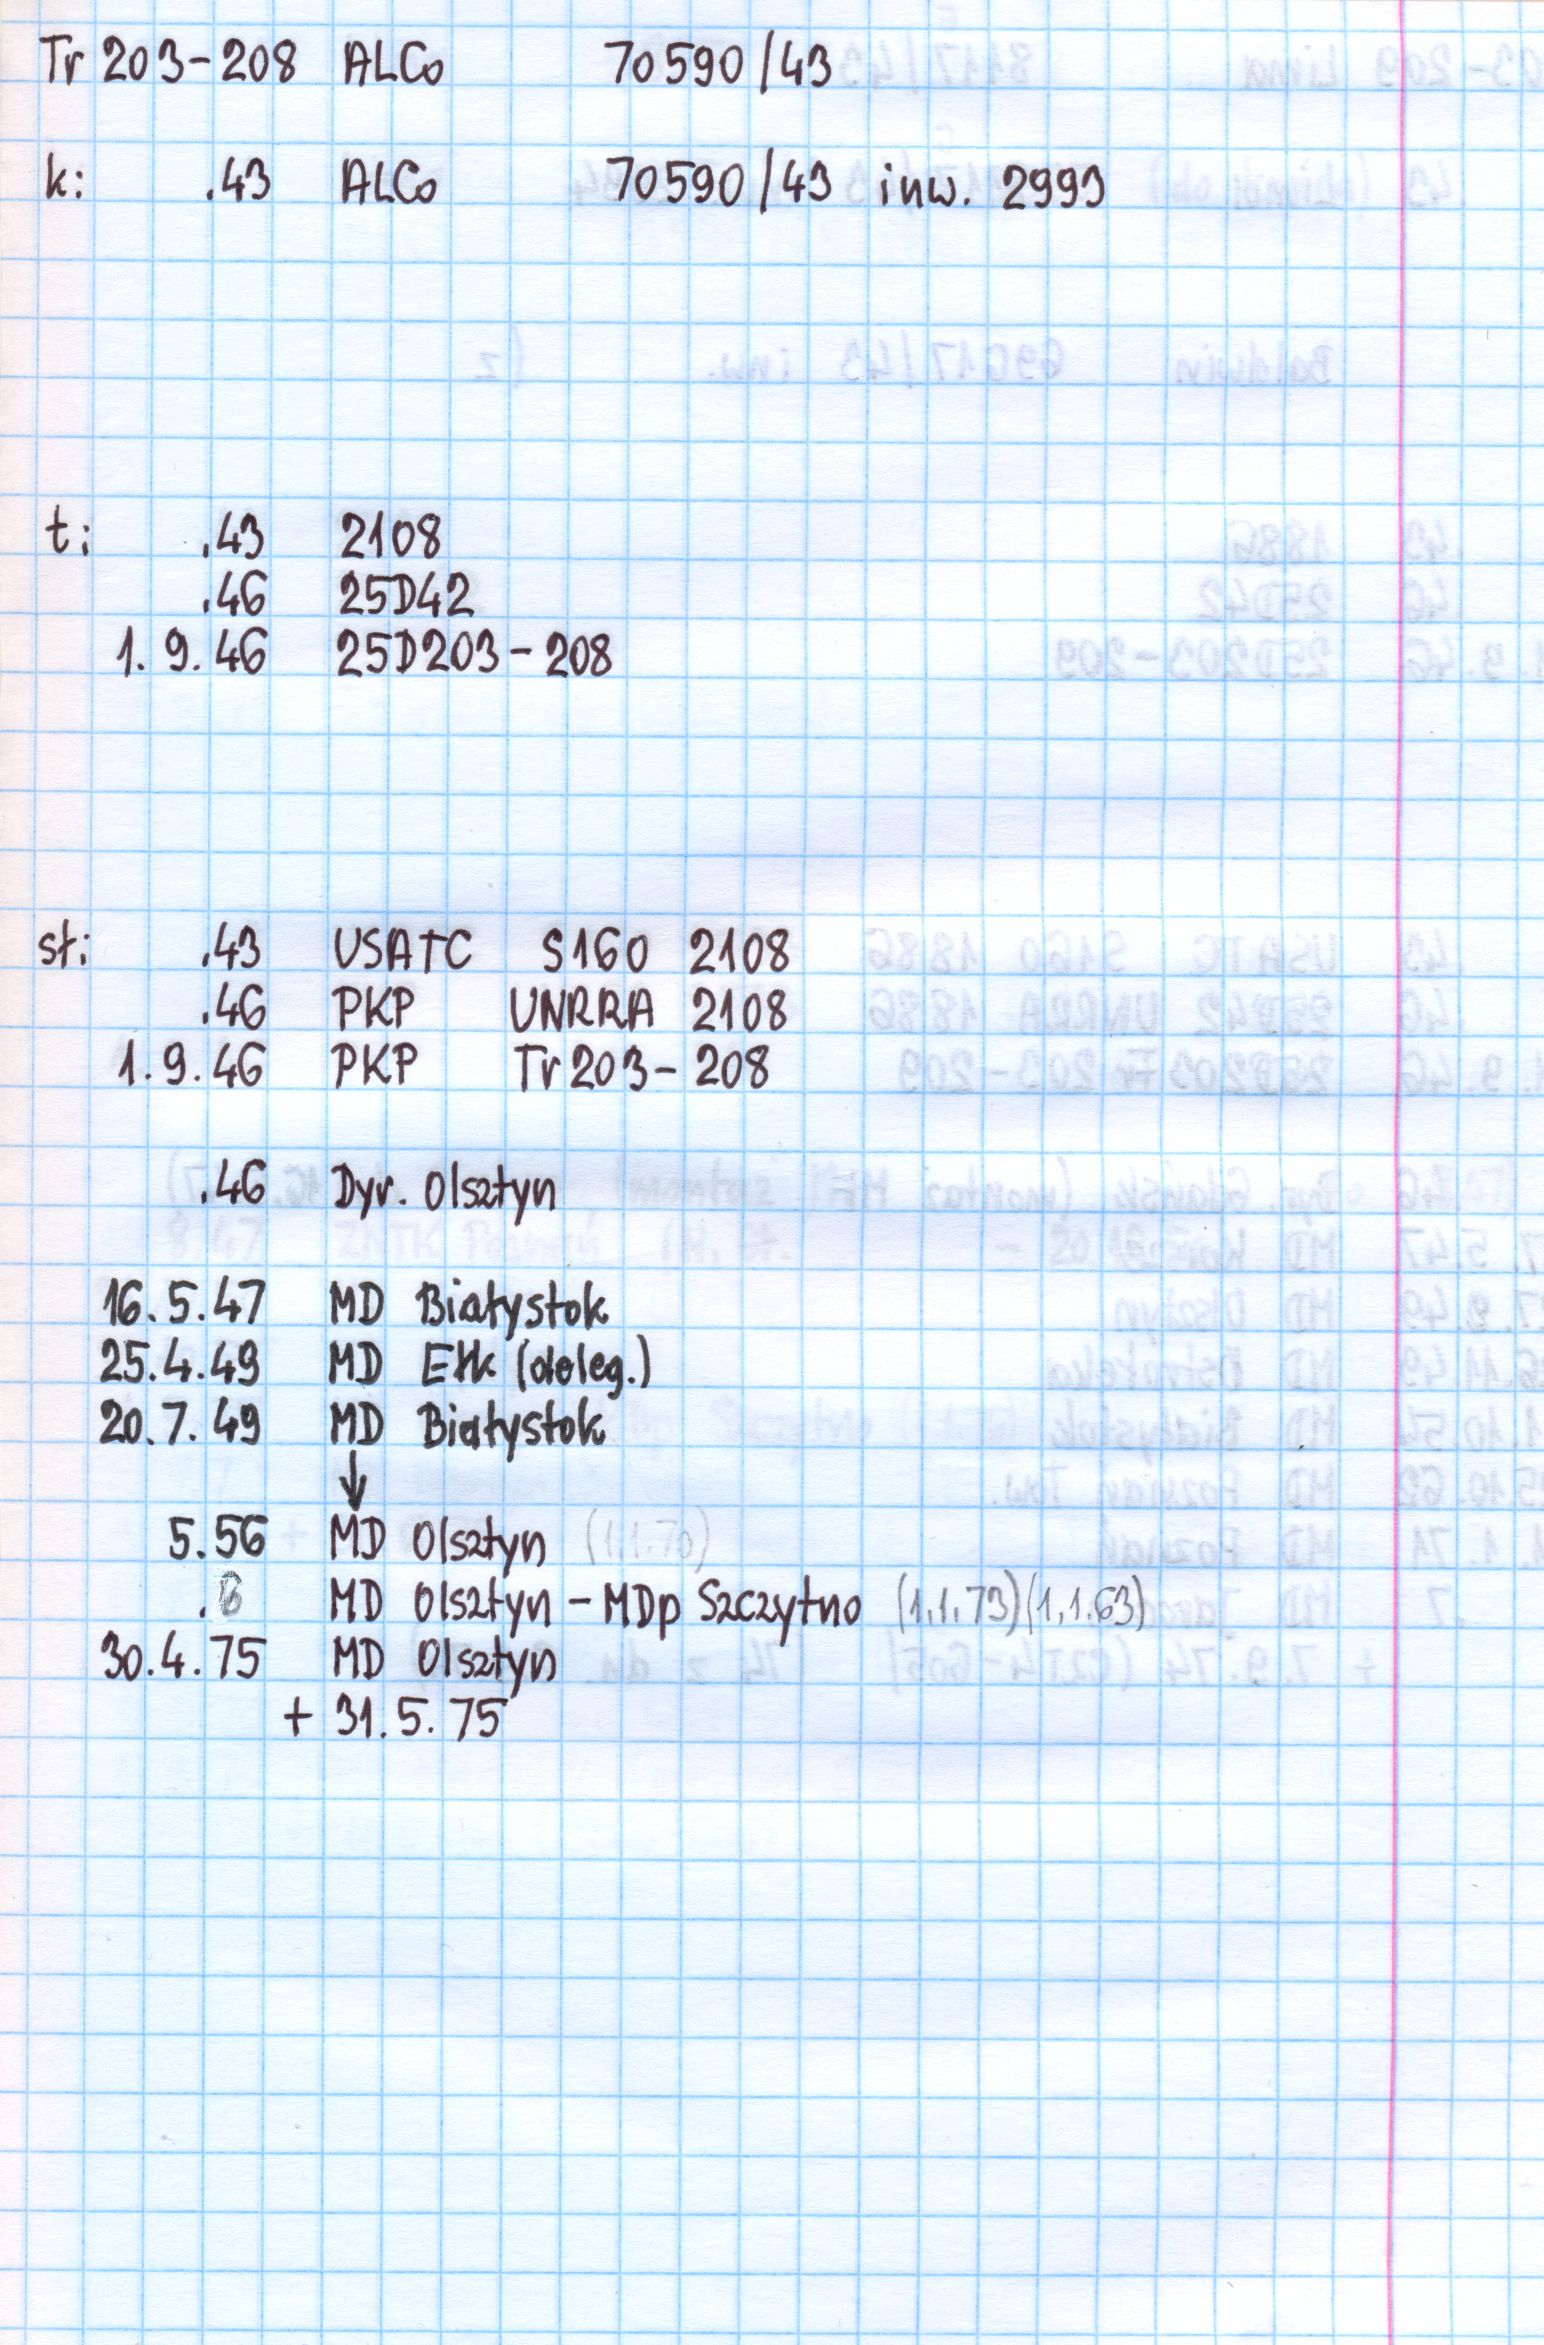 Tr 203-208 ALCo 70590/43
k: .43 ALCo 70590/43 inw. 2993
t: .43 2108
.46 25D42
1.9.46 25D203-208
st: .43 USATC S160 2108
.46 PKP UNRRA 2108
1.9.46 PKP Tr 203-208
.46 Dyr. Olsztyn
16.5.47 MD Białystok
25.4.49 MD Ełk (deleg.)
20.7.49 MD Białystok
↓
5.56 MD Olsztyn (1.1.70)
. MD Olsztyn - MDp Szczytno (1.1.73)(1.1.63)
30.4.75 MD Olsztyn
+ 31.5.75